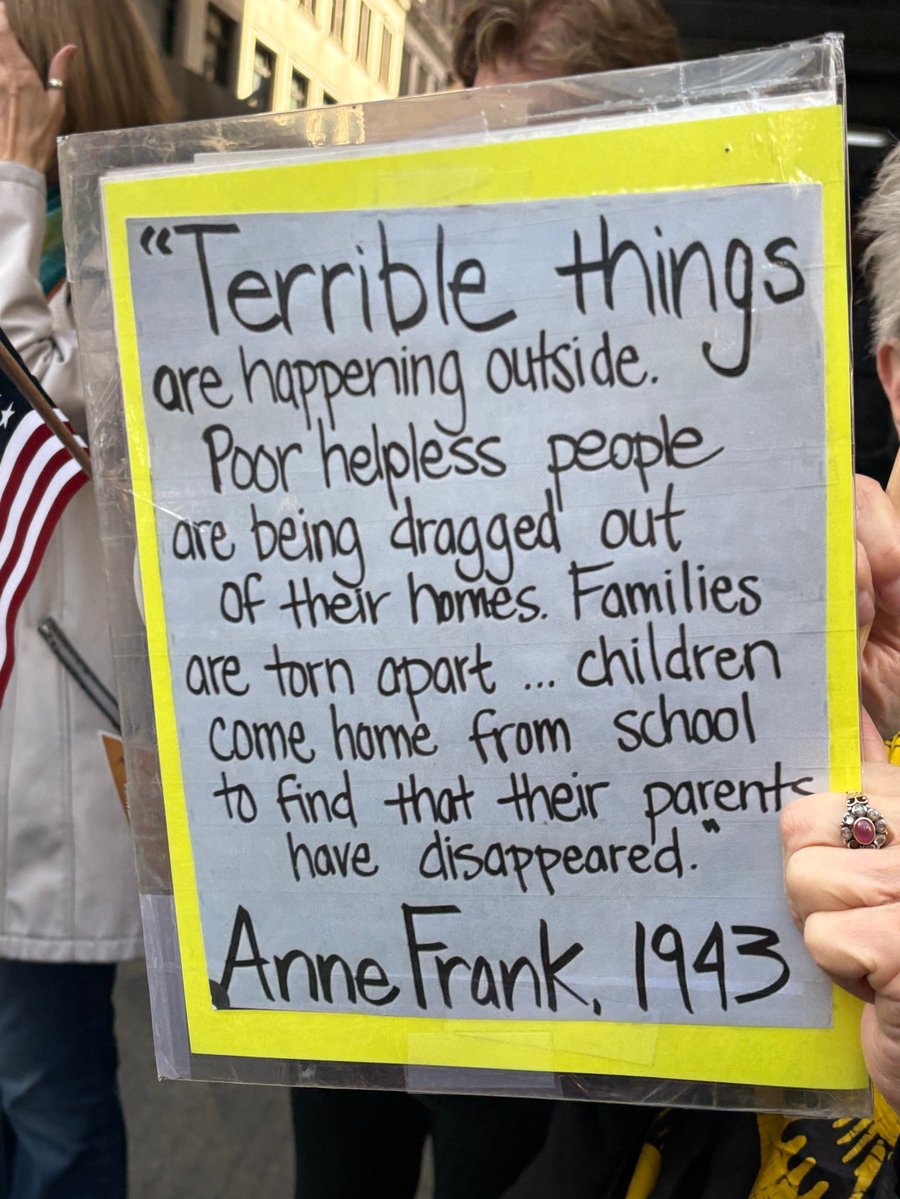 "Terrible things
are happening outside.
Poor helpless people
are being dragged out
of their homes. Families
are torn apart ... children
come home from school
to find that their parents
have disappeared."
Anne Frank, 1943